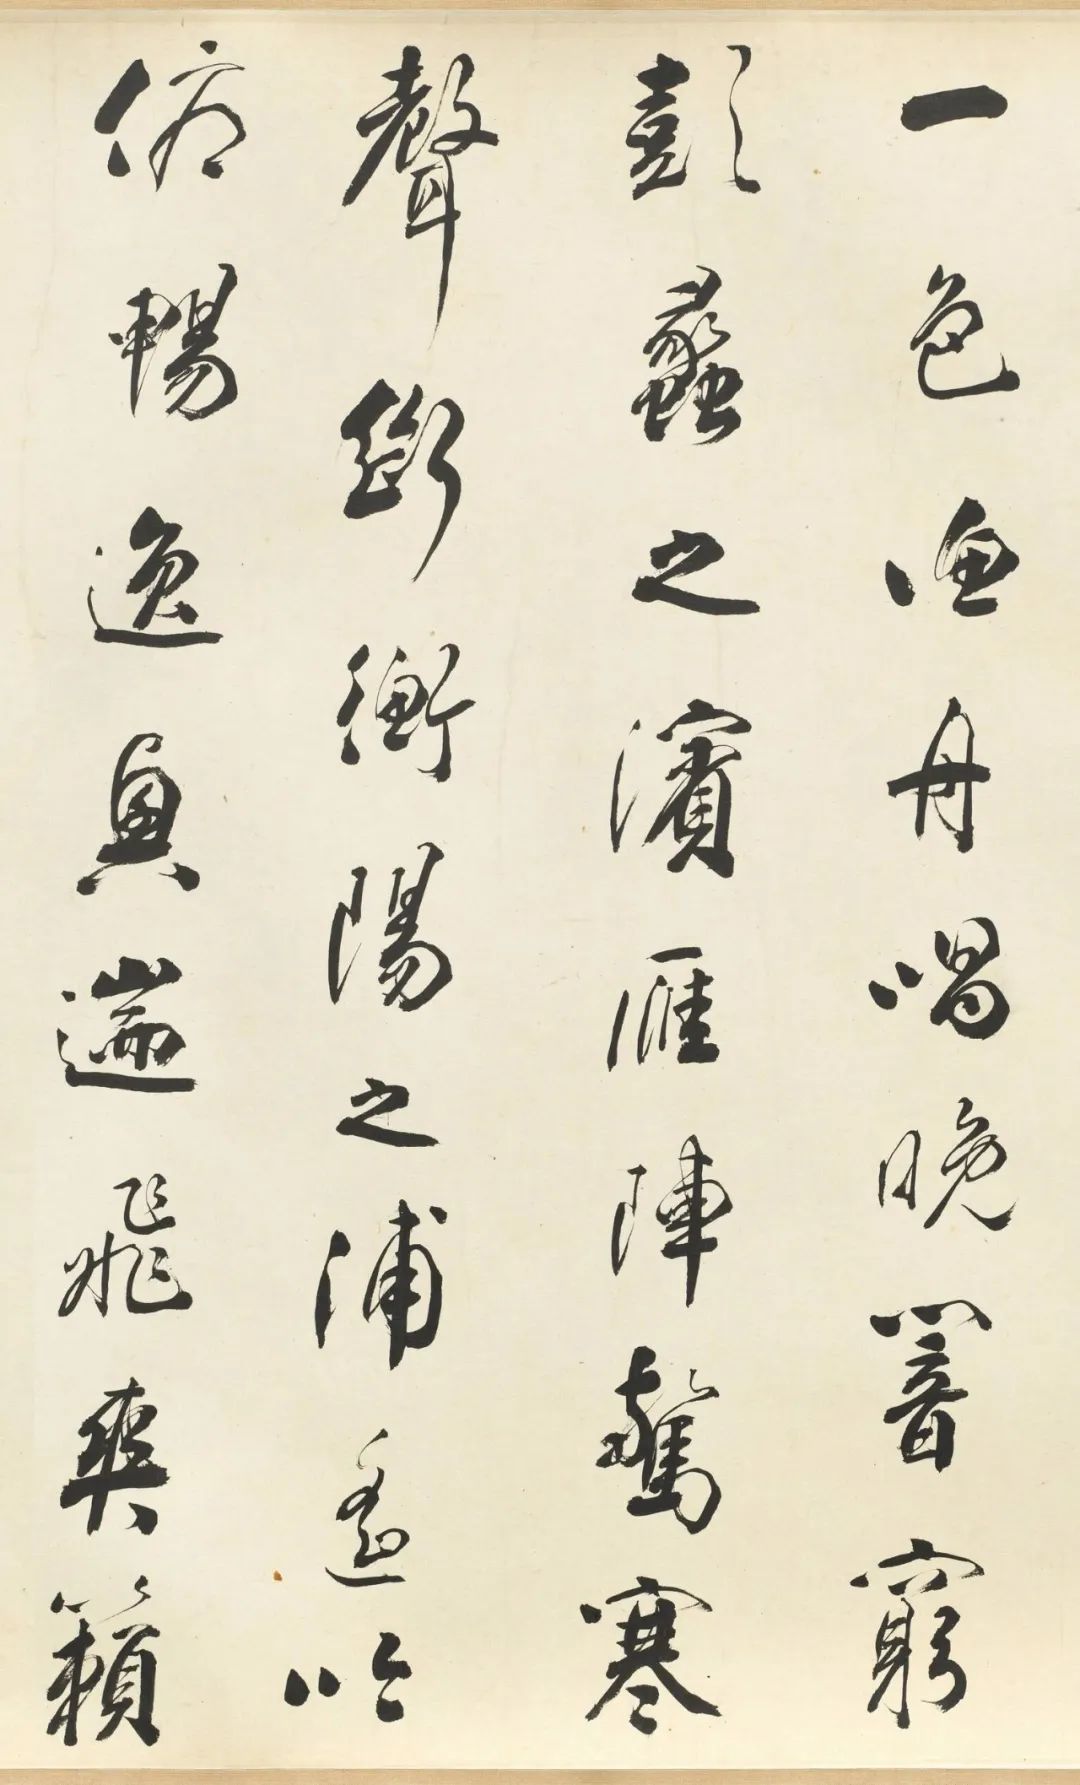 一色漁舟唱晚響窮
彭蠡之濱雁陣驚寒
聲斷衡陽之浦遙吟
俯暢逸興遄飛爽籟